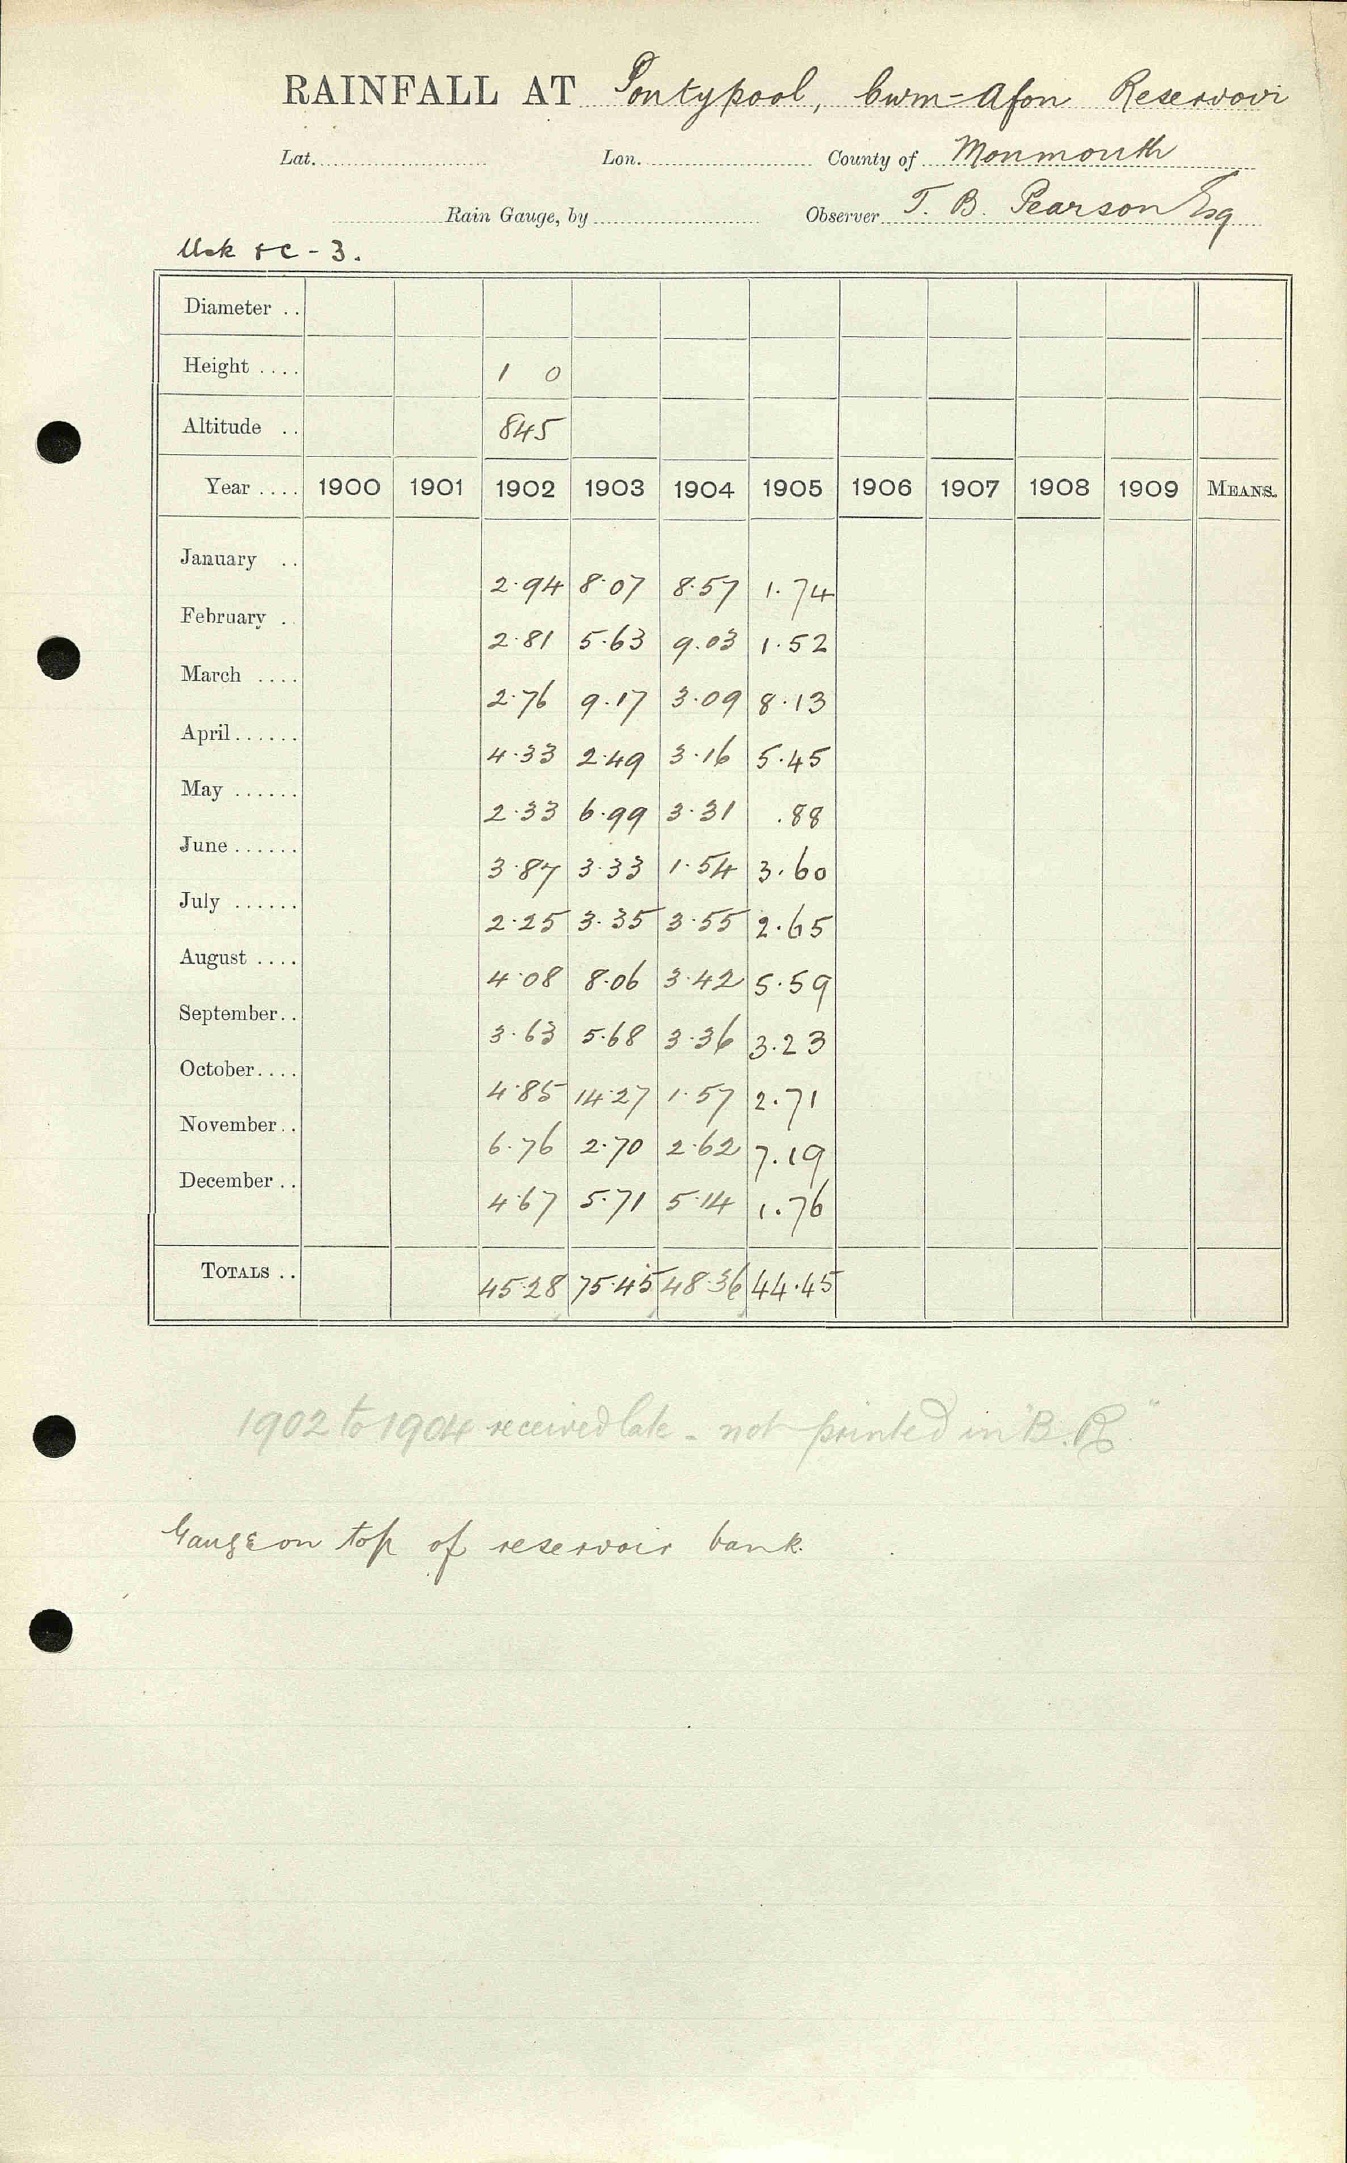 RAINFALL AT Pontypool, Cwm-Afon Reservoir
Lat. Lon. County of Monmouth
Rain Gauge, by Observer T. B. Pearson Esq
Usk &c - 3.
Diameter ..
Height .... 1 0
Altitude .. 845
Year .... 1900 1901 1902 1903 1904 1905 1906 1907 1908 1909 MEANS.
January .. 2.94 8.07 8.57 1.74
February .. 2.81 5.63 9.03 1.52
March .... 2.76 9.17 3.09 8.13
April ...... 4.33 2.49 3.16 5.45
May ...... 2.33 6.99 3.31 .88
June ...... 3.87 3.33 1.54 3.60
July ...... 2.25 3.35 3.55 2.65
August .... 4.08 8.06 3.42 5.59
September.. 3.63 5.68 3.36 3.23
October.... 4.85 14.27 1.57 2.71
November.. 6.76 2.70 2.62 7.19
December .. 4.67 5.71 5.14 1.76
TOTALS .. 45.28 75.45 48.36 44.45
1902 to 1904 received late - not printed in "B.R."
Gauge on top of reservoir bank.